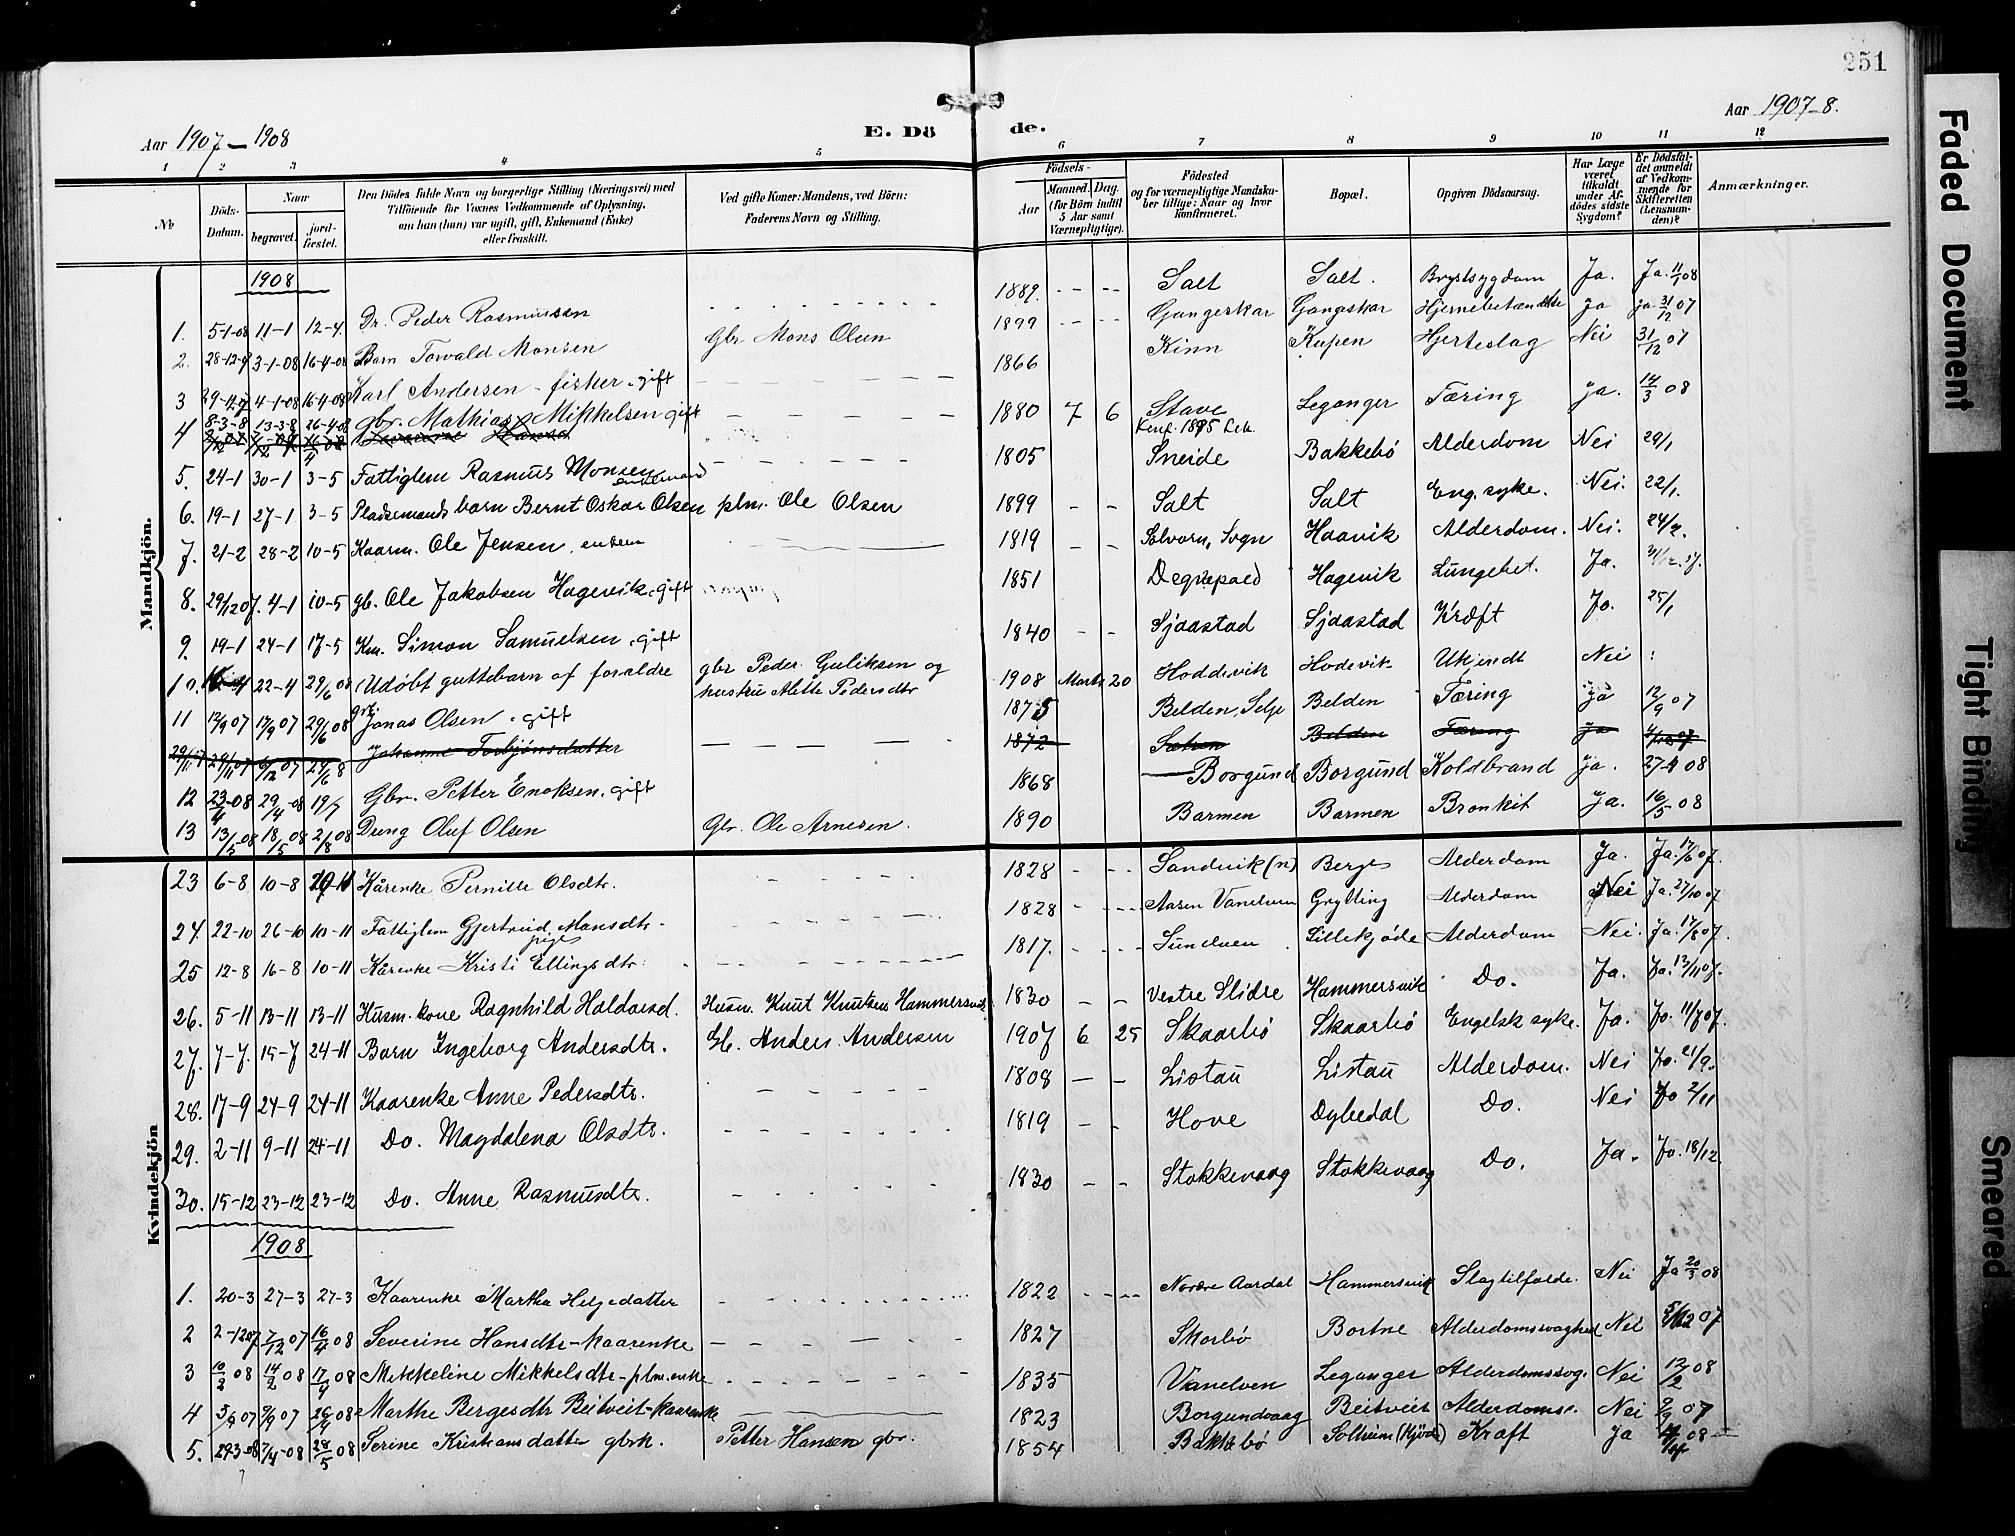 251
Aar 1907 – 1908
E. Dö
de.
Aar 1907-8.
1 2 3 4 5 6 7 8 9 10 11 12
No
Döds-Datum.
Naar
begravet.
jord-fæstet.
Den Dödes fulde Navn og borgerlige Stilling (Næringsvei) med
Tilföiende for Voxnes Vedkommende af Oplysning,
om han (hun) var ugift, gift, Enkemand (Enke)
eller fraskilt.
Ved gifte Koner: Mandens, ved Börn:
Faderens Navn og Stilling.
Födsels-
Aar
Maaned. Dag.
(for Börn indtil
5 Aar samt
Værnepligtige).
Födested
og for værnepligtige Mandska-
ber tillige: Naar og hvor
konfirmeret.
Bopæl.
Opgiven Dödsaarsag.
Har Læge
været
tilkaldt
under Af-
dödes sidste
Sygdom?
Er Dödsfal-
det anmeldt
af Vedkom-
mende for
Skifteretten
(Lensman-
den)?
Anmærkninger.
Mandkjön.
1908
1. 5-1-08 11-1 12-4 Dr. Peder Rasmussen 1889. Salt Salt. Brystsygdom Ja. Ja. 11/1 08
2. 28-12-07 3-1-08 16-4-08 Barn Torvald Monsen Gbr Mons Olsen 1899 Gangeskar Gangskar Hjernebetændelse ja ja. 31/12 07
3 29-12-07 4-1-08 16-4-08 Karl Andersen - fisker - gift 1866 Kinn Kupen Hjerteslag Nei 31/12 07
4 8-3-8 13-3-8 26-4-08 gbr. Mathias Mikkelsen gift 1880 7 6 Stave Leganger Tæring ja. 14/3 08
Konf. 1895 Selje
5. 24-1 30-1 3-5 Fattiglem Rasmus Monsen enkemand 1805 Sneide Bakkebö Alderdom Nei 29/1
6. 19-1 27-1 3-5 Pladsemands barn Bernt Oskar Olsen plm. Ole Olsen 1899 Salt Salt Eng. syke. Nei. 22/1.
7. 21-2 28-2 10-5 Kaarm. Ole Jensen, enkem 1819 Solvorn, Sogn Haavik Alderdom. Nei. 24/2.
8. 29/12 07. 4-1 10-5 gb. Ole Jakobsen Hagevik, gift 1851 Degnepoled Hagevik Lungebet. Ja. 31/12. 07.
9. 19-1 24-1 17-5 Km. Simon Samuelsen, gift 1840 Sjaastad Sjaastad Kræft Jo. 25/1
10. 22-4 29/6 08 Udöbt guttebarn af forældre gbr Peder Guliksen og 1908 Marts 20 Hoddevik Hodevik Ukjendt Nei
hustru Alette Pedersdtr
11 12/9 07 17/9 07 29/6 08 gbr. Jonas Olsen, gift 1875 Belden, Selje Belden Tæring ja 12/9 07
29/11 07 6/12 07 29/6 8 Johanne Torbjörnsdatter 1872 Sætren Belden Tæring ja
12 23/4-08 29/4-08 19/7 Gbr. Petter Enoksen, gift 1868 Borgund Borgund Koldbrand ja. 27-4 08
13 13/5 08 18/5 08 2/8 08 Dreng Oluf Olsen Gbr. Ole Arnesen. 1890 Barmen Barmen Bronkit ja. 16/5 08
Kvindekjön
23 6-8 10-8 29-11 Kårenke Pernille Olsdtr. 1828 Sandvik (n) Berge Alderdom Ja. Ja. 17/8 07.
24. 22-10 26-10 10-11 Fattiglem Gjertrud Monsdtr. 1828 Aasen Vanelven Grytting Alderdom Nei Ja. 27/10 07
pige
25 12-8 16-8 10-11 Kårenke Kristi Ellingsdtr. 1817. Sunelven Lillekjöde Alderdom Nei. Ja. 17/8 07.
26. 5-11 13-11 13-11 Husm. kone Ragnhild Haldorsd. Husm. Knut Knutsen Hammersvik 1830 Vestre Slidre Hammersvik Do. Ja. Ja. 13/11 07.
27. 7-7. 15-7 24-11 Barn Ingeborg Andersdtr. Gb. Anders Andersen 1907 6 25 Skaarbö Skaarbö Engelsk syke. Ja. Jo. 11/7 07.
28. 17-9 24-9 24-11 Kaarenke Anne Pedersdtr. 1808 Listau Listau Alderdom. Nei Jo. 21/9.
29. 2-11 9-11 24-11 Do. Magdalena Olsdtr. 1819 Hove Dybedal Do. Nei Jo 2/11
30. 15-12 23-12 23-12 Do. Anne Rasmusdtr. 1830 Stokkevaag Stokkevaag Do. Ja. Jo. 18/12
1908
1. 20-3 27-3 27-3 Kaarenke Martha Helgedatter 1822 Nordre Aardal Hammersvik Slagtilfælde. Nei Ja 20/3 08
2 2-12 07 7/12 07 16/4 08 Severine Hansdtr - kaarenke 1827 Skorbö Bortne Alderdomssvaghed Nei 5/12 07
3 10/2 08 14/2 08 17/4 08 Mikkeline Mikkelsdtr - plm. enke 1835 Vanelven Leganger Alderdomssvag. Nei 12/2 08
4 3/9 07 9/9 07 26/4 08 Marthe Bergesdtr Beitveit - kaarenke 1823 Borgundvaag Beitveit Alderdoms. Nei 9/9 07
5. 29-3-08 7/4-08 28/5 08 Serine Kristiansdatter gbrk. Petter Hansen gbr. 1854 Bakkebö Solheim (Kjöde) Kræft ja 08
Faded Document
Tight Binding
Smeared